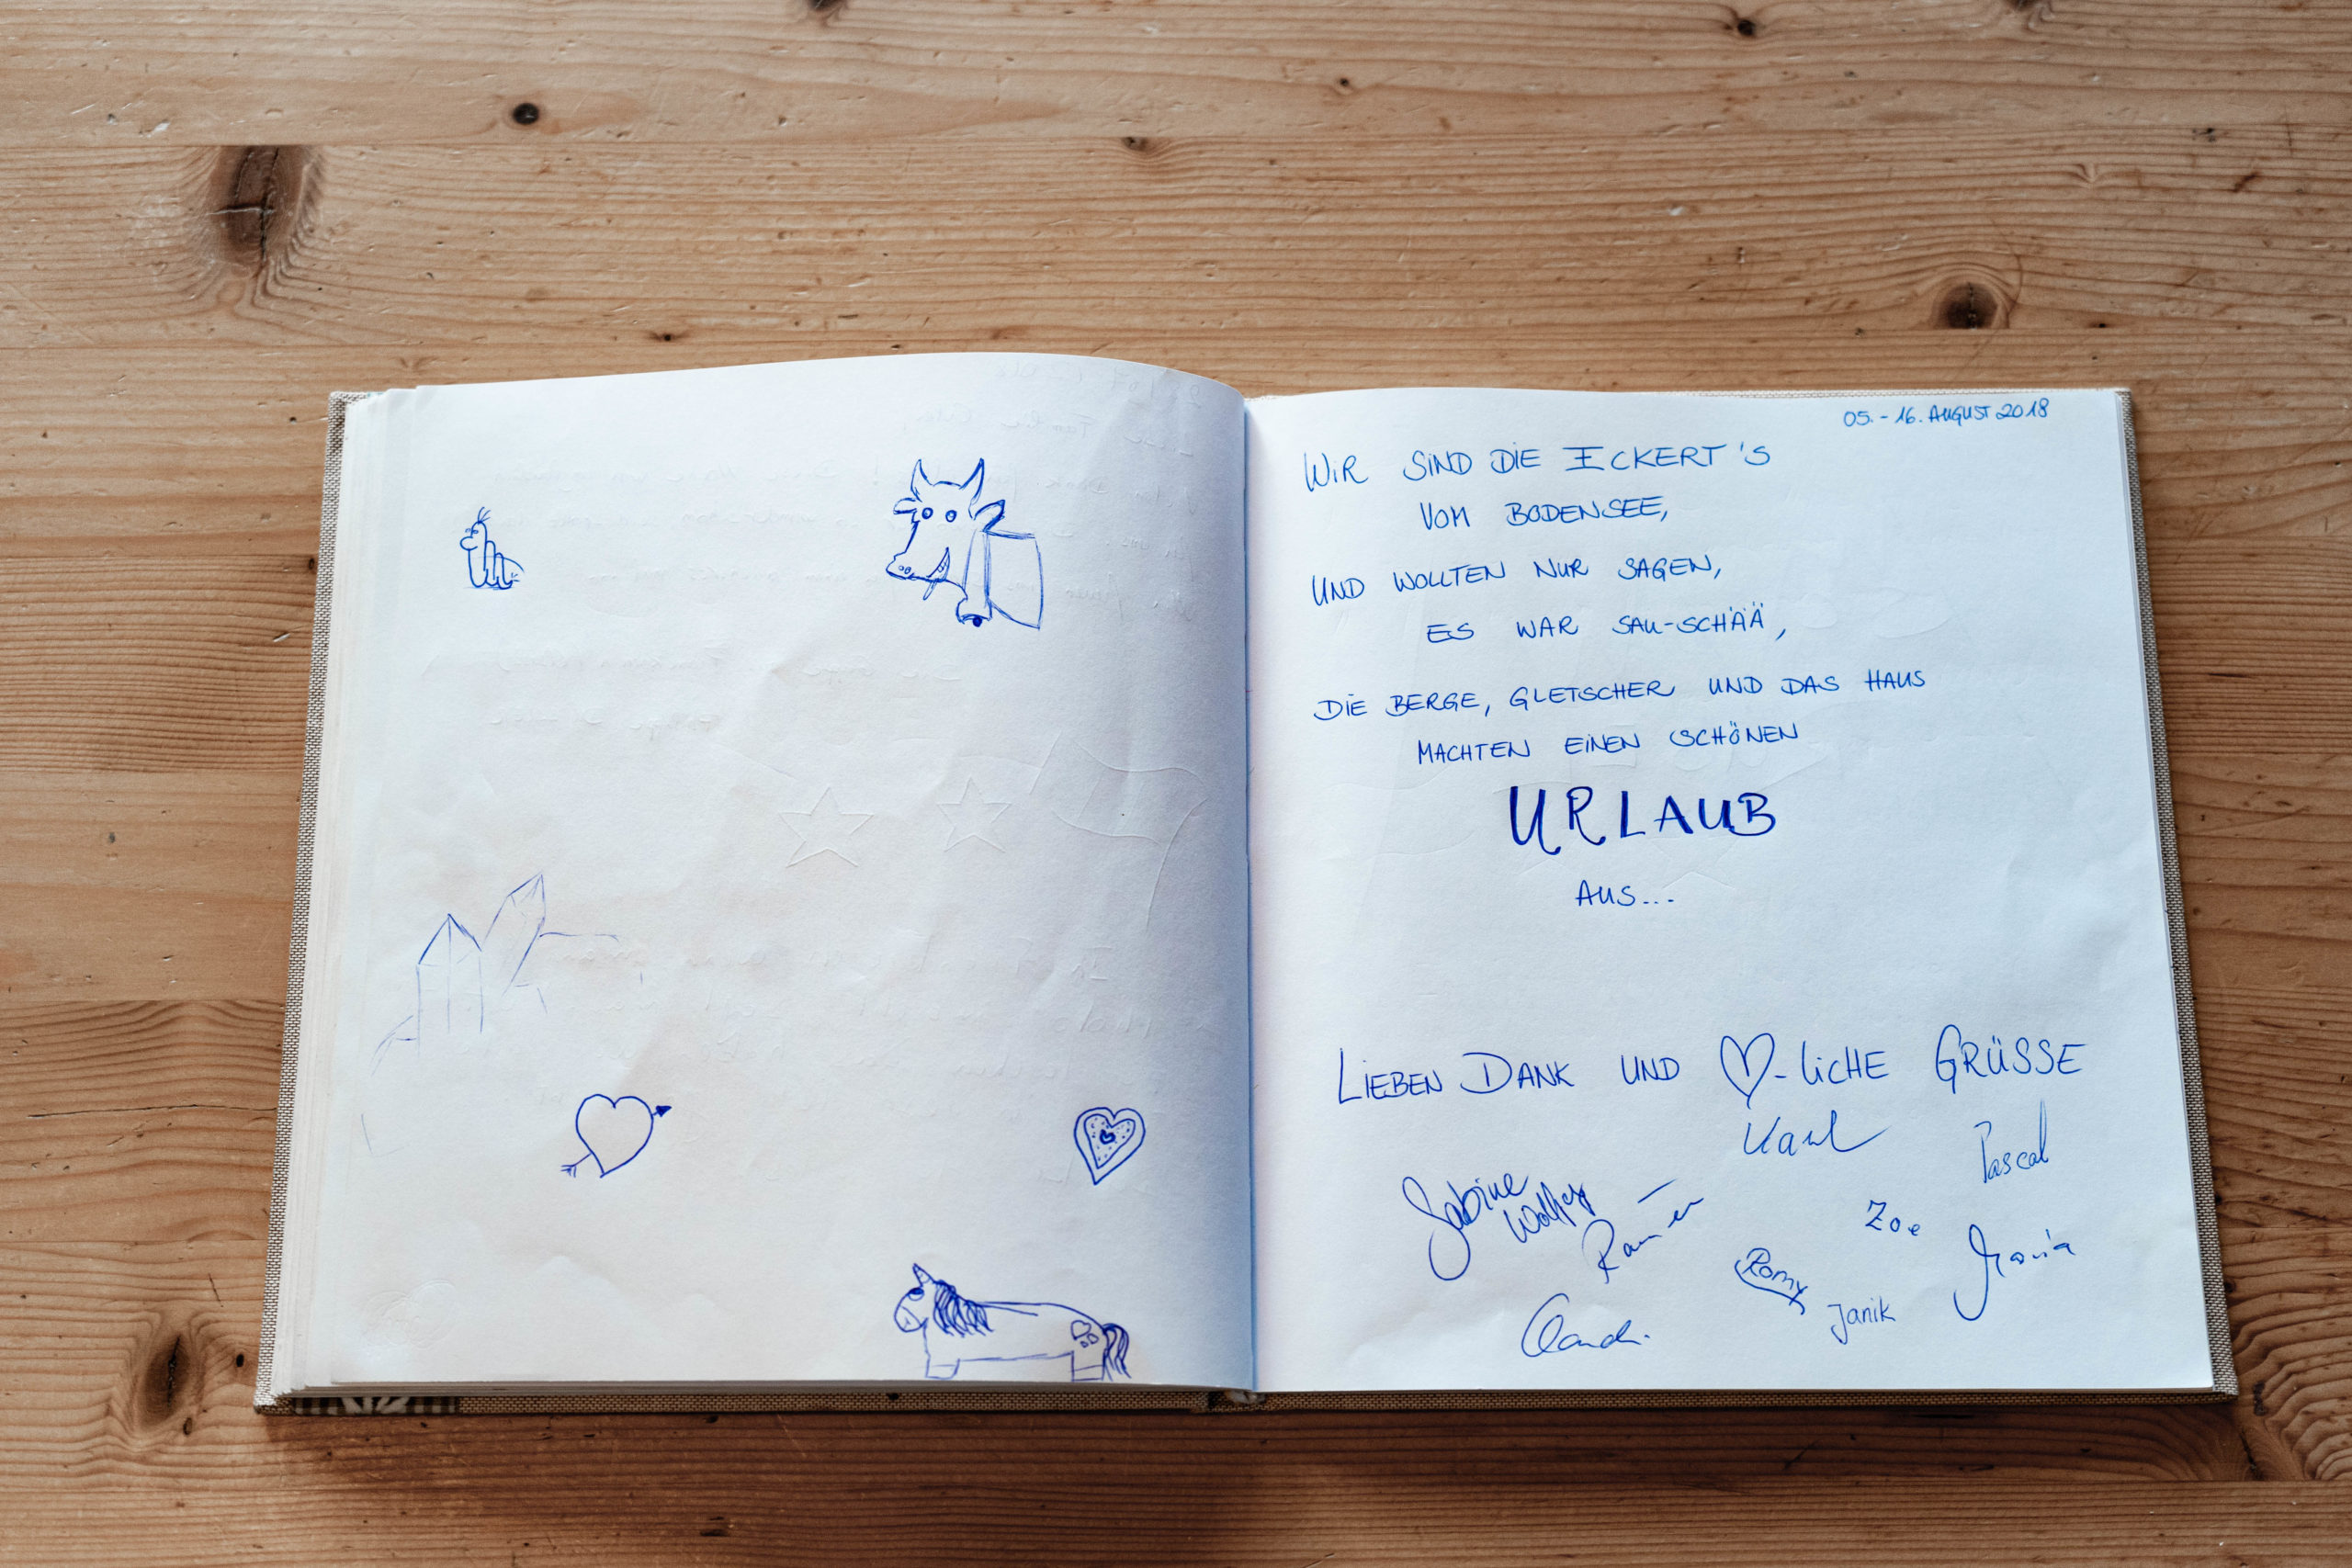 05. - 16. AUGUST 2018
WIR SIND DIE ECKERT'S
VOM BODENSEE,
UND WOLLTEN NUR SAGEN,
ES WAR SAU-SCHÄÄ,
DIE BERGE, GLETSCHER UND DAS HAUS
MACHTEN EINEN SCHÖNEN
URLAUB
AUS...
LIEBEN DANK UND ♡-LICHE GRÜSSE
Karl
Pascal
Sabine
Zoe
Maria
Romy
Janik